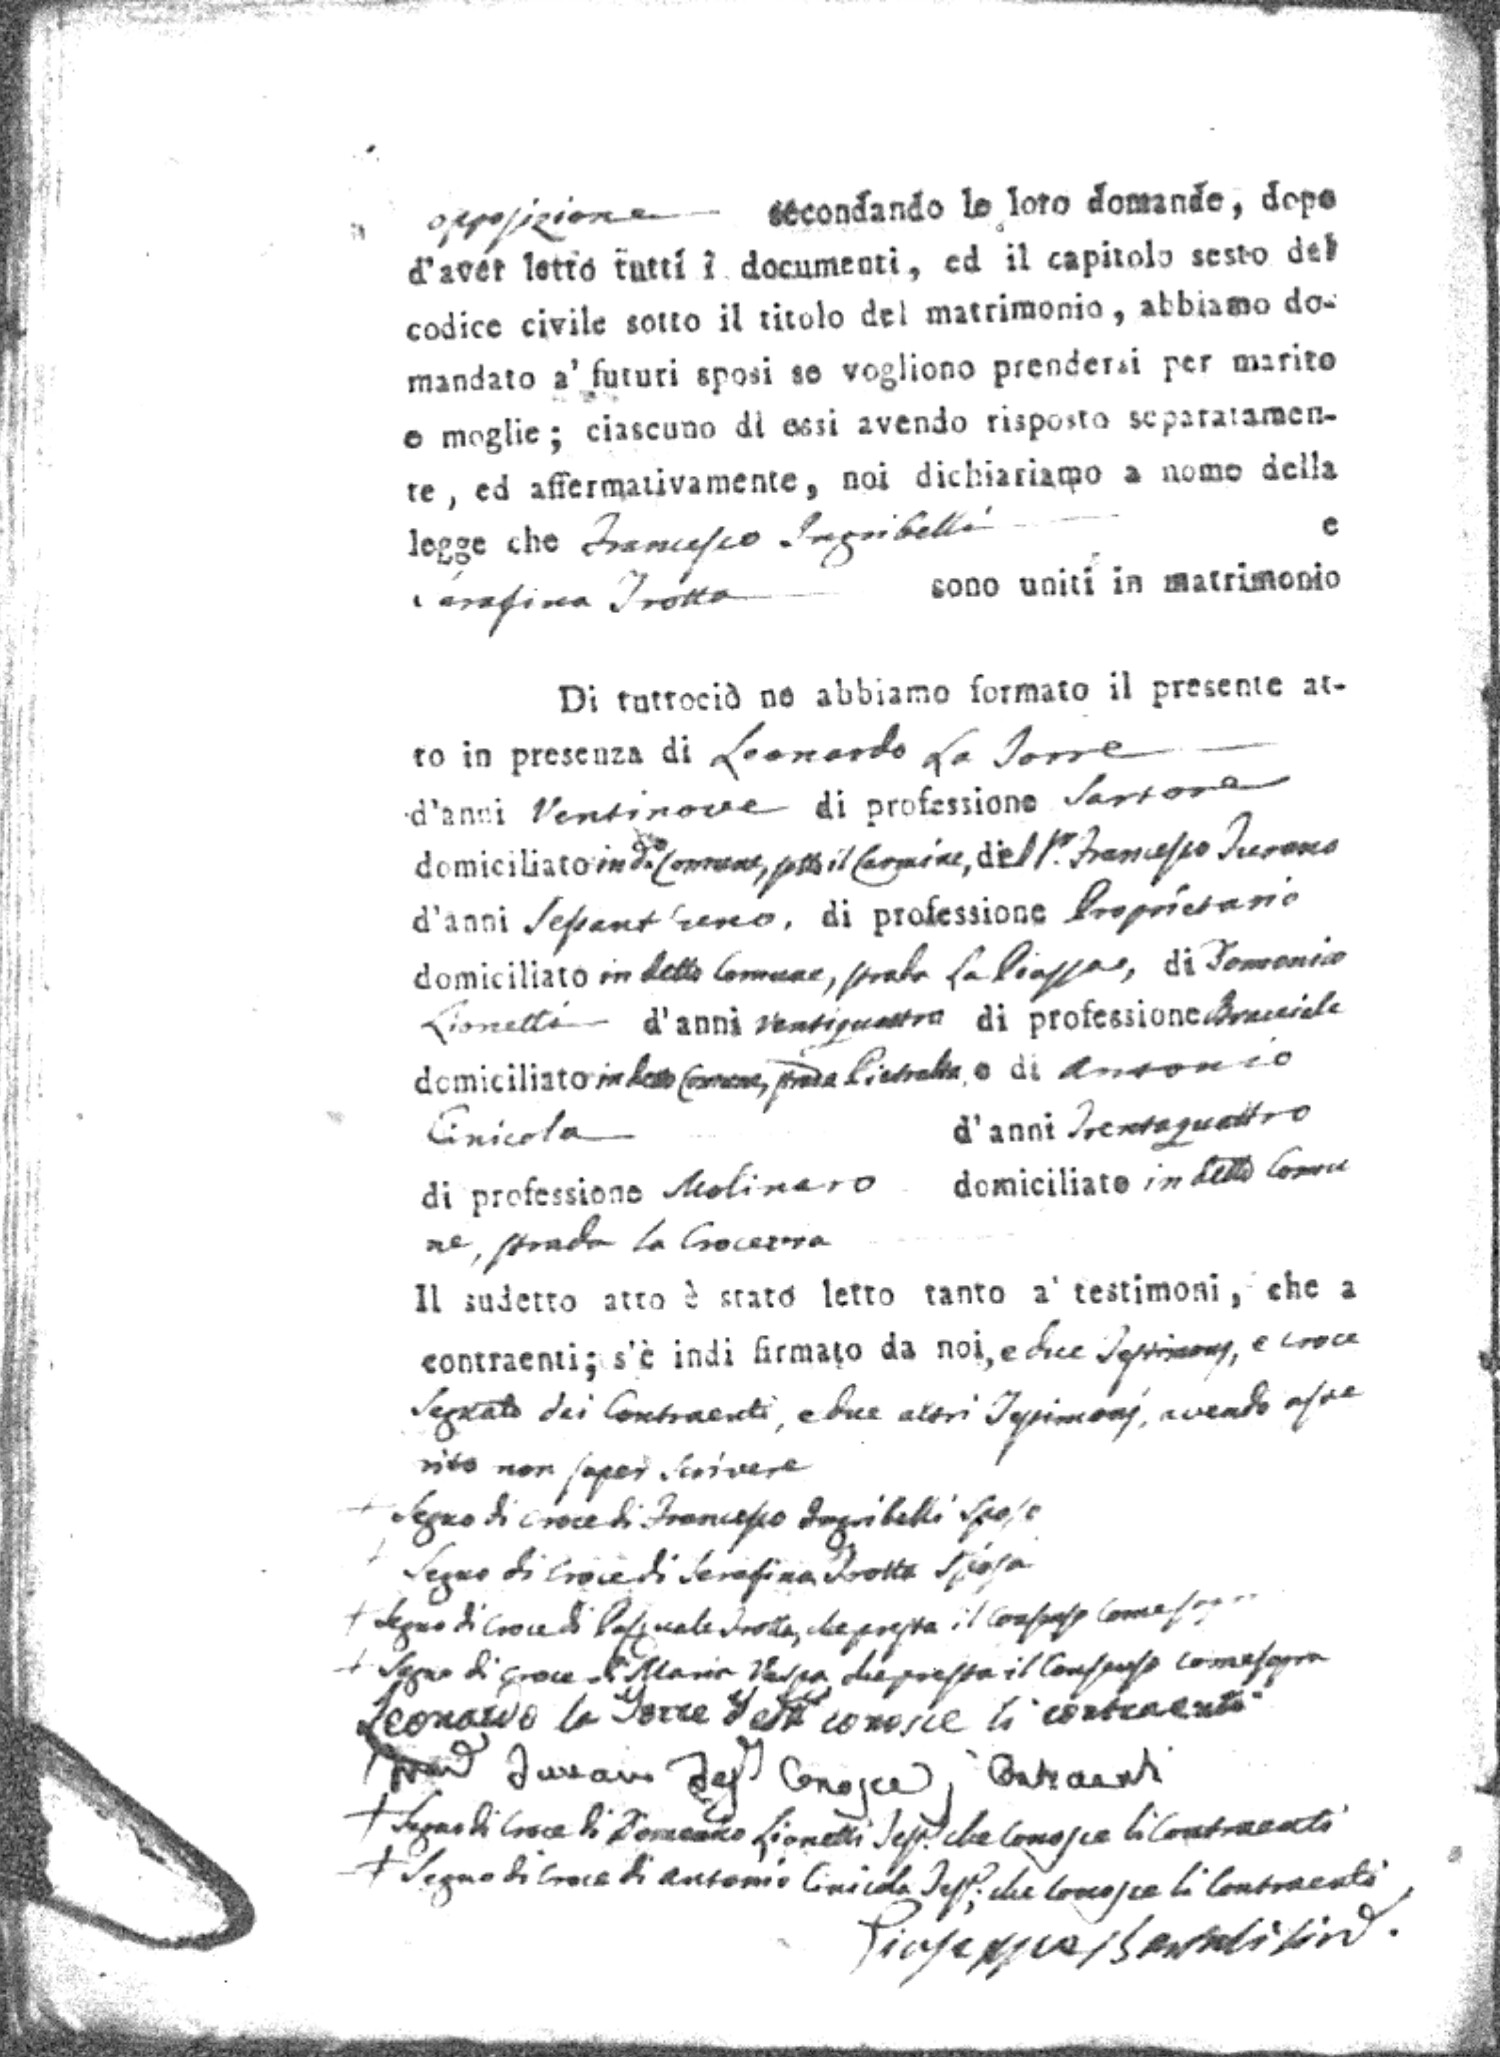 opposizione secondando le loro domande, dopo
d'aver letto tutti i documenti, ed il capitolo sesto del
codice civile sotto il titolo del matrimonio, abbiamo do-
mandato a' futuri sposi se vogliono prendersi per marito
e moglie; ciascuno di essi avendo risposto separatamen-
te, ed affermativamente, noi dichiariamo a nome della
legge che Francesco Ingribelli e
Serafina Trotta sono uniti in matrimonio
Di tuttociò ne abbiamo formato il presente at-
to in presenza di Leonardo La Torre
d'anni Ventinove di professione Sartore
domiciliato in d.to Comune, sotto il Carmine, di Francesco Turano
d'anni Sessant'uno, di professione Proprietario
domiciliato in detto Comune, strada La Piazza, di Domenico
Lionetti d'anni ventiquattro di professione Bracciale
domiciliato in detto Comune, strada Pietralta e di Antonio
Cinicola d'anni Trentaquattro
di professione Molinaro domiciliato in detto Comu
ne, strada la Crocevia
Il sudetto atto è stato letto tanto a' testimoni, che a
contraenti; s'è indi firmato da noi, e due Testimonj, e croce
Segnato dei Contraenti, e due altri Testimonj, avendo asse
rito non saper scrivere
+ Segno di croce di Francesco Ingribelli Sposo
+ Segno di croce di Serafina Trotta Sposa
+ Segno di croce di Pasquale Trotta, che presta il consenso come sopra
+ Segno di croce di Maria Vespa che presta il consenso come sopra
Leonardo la Torre Test.e conosce li contraenti
Turano Test. Conosce i Contraenti
+ Segno di croce di Domenico Lionetti Test. che conosce li Contraenti
+ Segno di croce di Antonio Cinicola Test. che conosce li Contraenti
Giuseppe